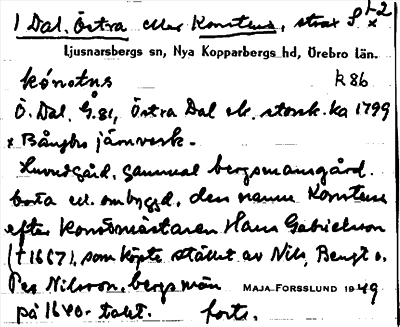 1 Dal, Östra eller Konstens, strax S. x 1-2
Ljusnarsbergs sn, Nya Kopparbergs hd, Örebro län.
kónstns k 86
Ö. Dal, G. 81, Östra Dal ek. storsk. ka 1799
x Bångbro järnverk.
Huvudgård, gammal bergsmansgård.
borta el. ombyggd, den namn Konstens
efter konstmästaren Hans Gabrielsson
(†1667), som köpte stället av Nils, Bengt o.
Per Nilsson, bergsmän MAJA FORSSLUND 1949
på 1640-talet. forts.